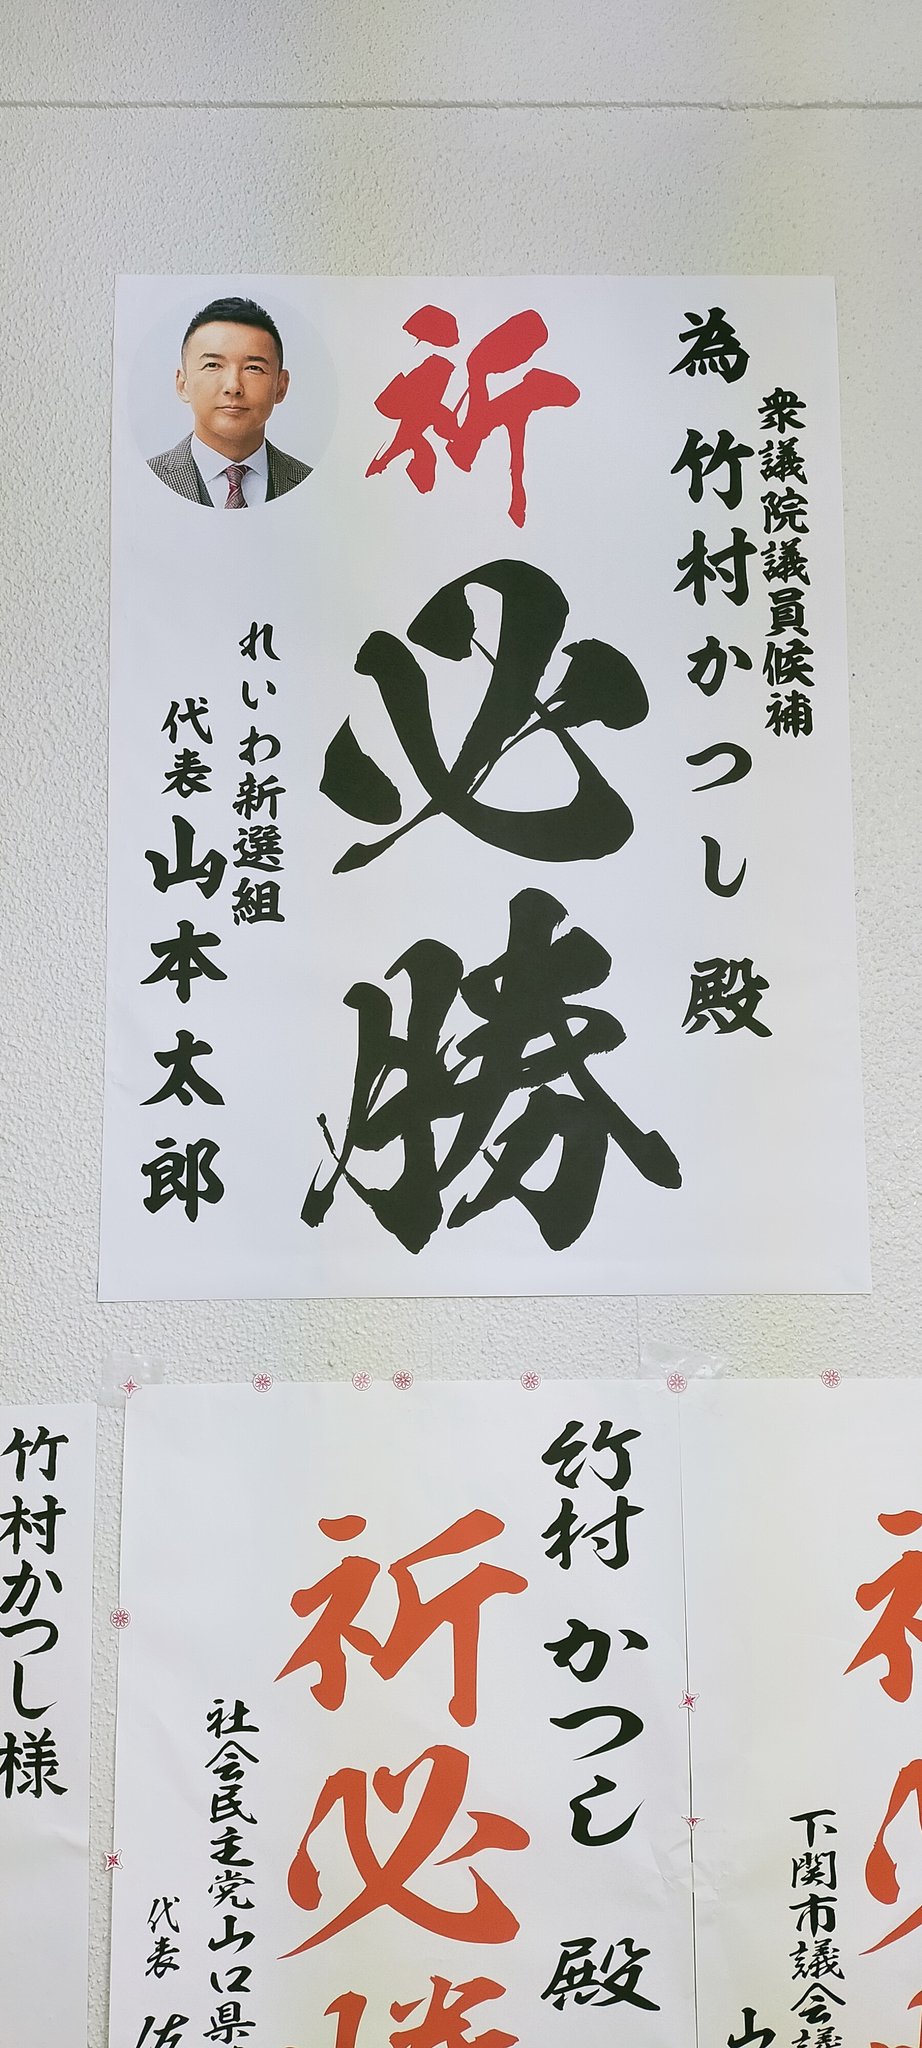 衆議院議員候補
為 竹村かつし 殿
祈
必勝
れいわ新選組
代表 山本太郎
下関市議会議
山
祈
竹村 かつし 殿
祈必勝
社会民主党山口県
代表 佐
竹村かつし様